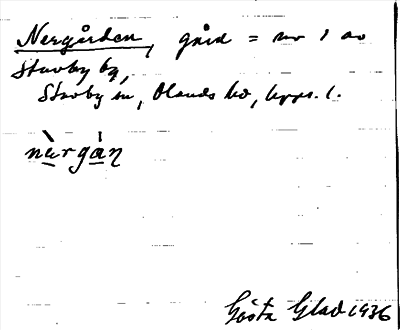 Nergården, gård = nr 1 av
Stavby by,
Stavby sn, Olands hd, Upps. l.
nàrgán
Gösta Glad 1936